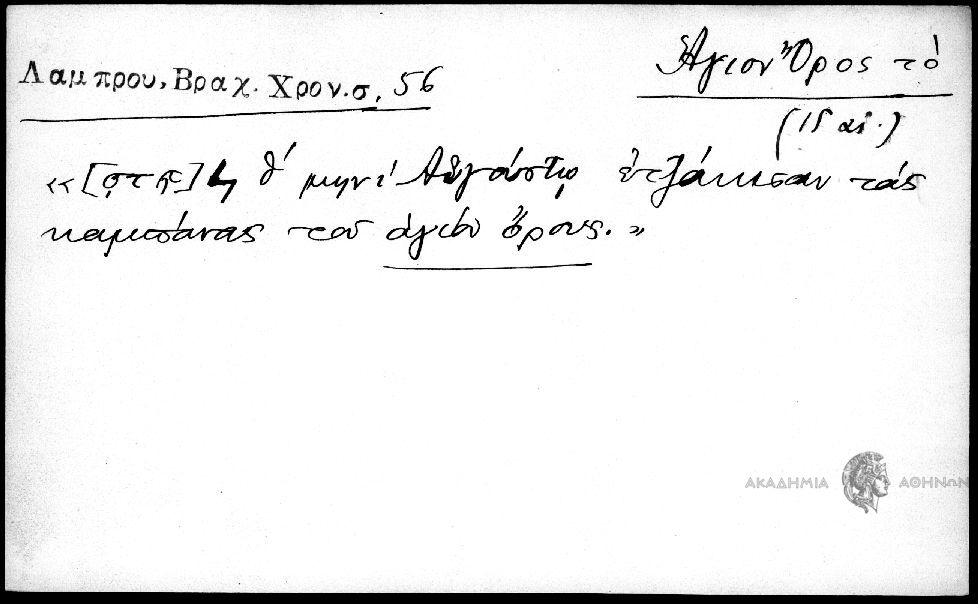 Λαμπρου, Βραχ. Χρον. σ. 56
Ἅγιον Ὄρος τὸ
(15 αἰ.)
«[ςτϠ]ϟ θʹ μηνὶ Αὐγούστῳ ἐτζάκισαν τὰς
καμπάνας τοῦ ἁγίου ὄρους.»
ΑΚΑΔΗΜΙΑ ΑΘΗΝΩΝ